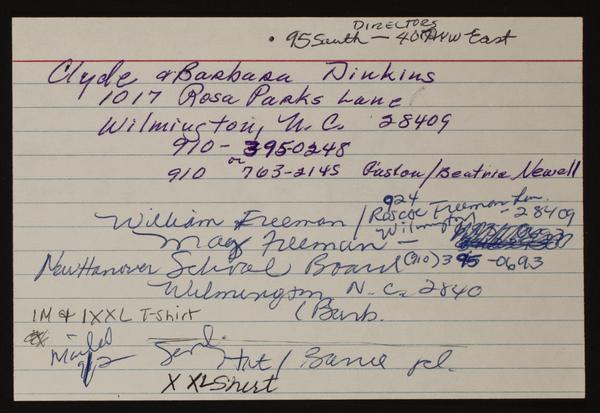 DIRECTORS
• 95 South — 40 HW East
Clyde & Barbara Dinkins
1017 Rosa Parks Lane
Wilmington, N.C. 28409
910 - 395-0248
or
910 763-2145 Guston/Beatrice Newell
William Freeman / 924 Roscoe Freeman Ln.
Mae Freeman — Wilmington - 28409
New Hanover School Board (910) 395-0693
Wilmington N.C. 2840
(Barb.
1M & 1XXL T-Shirt
Mailed
Send Hat /
XXL Shirt